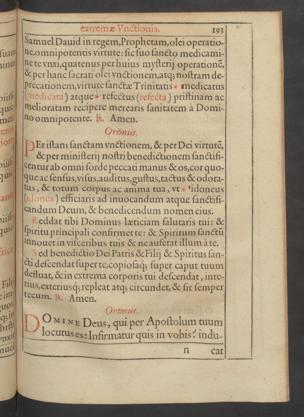 extremæ Vnctionis. 193
Samuel Dauid in regem, Prophetam, olei operatio-
ne, omnipotentis virtute: sic suo sancto medicami-
ne te vnxi, quatenus per huius mysterij operationē,
& per hanc sacrati olei vnctionem, atq; nostram de-
precationem, virtute sanctæ Trinitatis * medicatus
(medicata) atque * refectus (refecta) pristinam ac
melioratam recipere merearis sanitatem à Domi-
no omnipotente. ℟. Amen.
Oremus.
PEr istam sanctam vnctionem, & per Dei virtutē,
& per ministerij nostri benedictionem sanctifi-
centur ab omni sorde peccati manus & cor, quo-
que ac sensus, visus, auditus, gustus, tactus & odora-
tus, & totum corpus ac anima tua, vt * idoneus
(idonea) efficiaris ad inuocandum atque sanctifi-
candum Deum, & benedicendum nomen eius.
Reddat tibi Dominus lætitiam salutaris tui: &
spiritu principali confirmet te: & Spiritum sanctū
innouet in visceribus tuis & ne auferat illum à te.
Sed benedictio Dei Patris & Filij & Spiritus san-
cti descendat super te, copiosaq; super caput tuum
defluat, & in extrema corporis tui descendat, inte-
rius, exteriusq; repleat atq; circundet, & sit semper
tecum. ℟. Amen.
Oremus.
DOMINE Deus, qui per Apostolum tuum
locutus es: Infirmatur quis in vobis? indu-
n cat